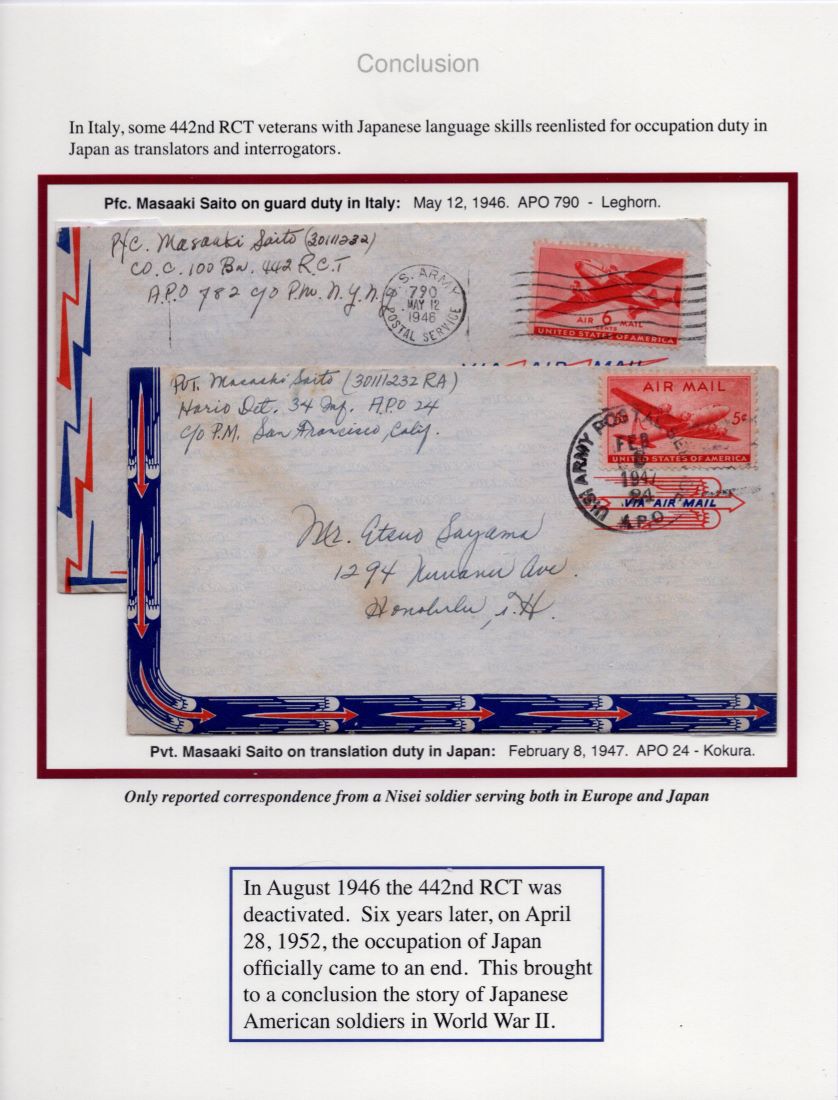 Conclusion
In Italy, some 442nd RCT veterans with Japanese language skills reenlisted for occupation duty in
Japan as translators and interrogators.
Pfc. Masaaki Saito on guard duty in Italy: May 12, 1946. APO 790 - Leghorn.
Pfc. Masaaki Saito (30111232)
CO. C. 100 Bn. 442 R.C.T
A.P.O 782 c/o P.M. N.Y. N.Y.
U.S. ARMY
790
MAY 12
1946
POSTAL SERVICE
AIR 6 MAIL
CENTS
UNITED STATES OF AMERICA
VIA AIR MAIL
Pvt. Masaaki Saito (30111232 RA)
Hario Det. 34 Inf. A.P.O 24
c/o P.M. San Francisco, Calif.
AIR MAIL
5¢
UNITED STATES OF AMERICA
U.S. ARMY POSTAL SERVICE
FEB
8
1947
24
A.P.O.
VIA AIR MAIL
Mr. Etsuo Sayama
1294 Nuuanu Ave.
Honolulu, T.H.
Pvt. Masaaki Saito on translation duty in Japan: February 8, 1947. APO 24 - Kokura.
Only reported correspondence from a Nisei soldier serving both in Europe and Japan
In August 1946 the 442nd RCT was
deactivated. Six years later, on April
28, 1952, the occupation of Japan
officially came to an end. This brought
to a conclusion the story of Japanese
American soldiers in World War II.